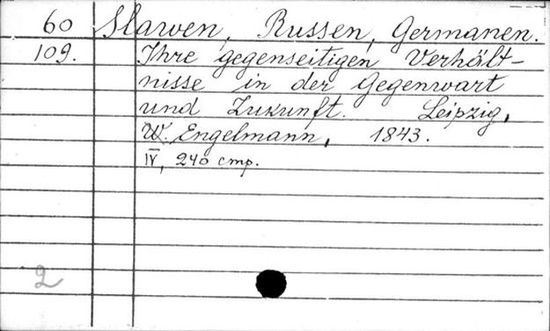 60 Slawen, Russen, Germanen.
109. Ihre gegenseitigen Verhält-
nisse in der Gegenwart
und Zukunft. Leipzig,
W. Engelmann, 1843.
IV, 240 стр.
2